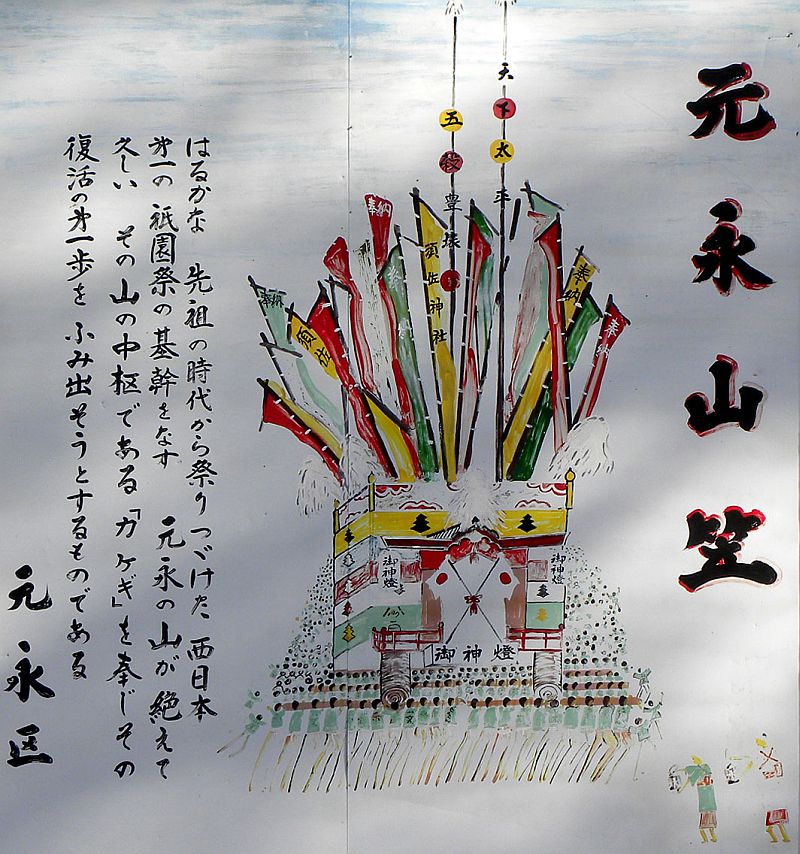 元永山笠
天下太平
五穀豊穣
奉納
須佐神社
奉納
奉納
奉納
須佐
御神燈
御神燈
御神燈
はるかな 先祖の時代から祭りつづけた 西日本
第一の 祇園祭の基幹をなす 元永の山が絶えて
久しい その山の中枢である「カケギ」を奉じその
復活の第一歩を ふみ出そうとするものである
元永区